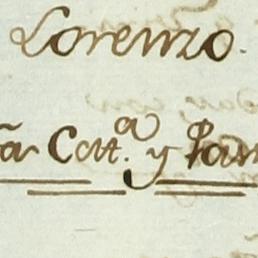 Lorenzo.
ña Catt.ª y Par